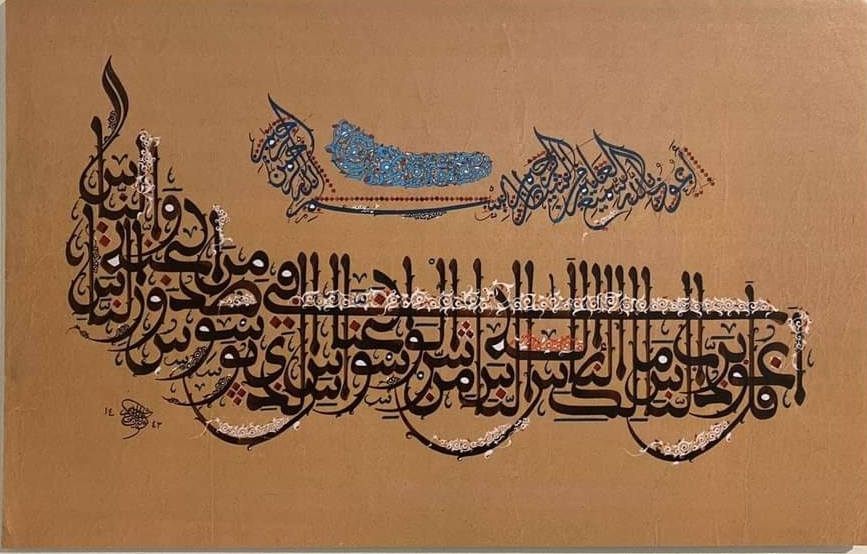 أعوذ بالله السميع العليم من الشيطان الرجيم
بسم الله الرحمن الرحيم
قل أعوذ برب الناس ملك الناس إله الناس من شر الوسواس الخناس الذي يوسوس في صدور الناس من الجنة والناس
١٤ ٤٢